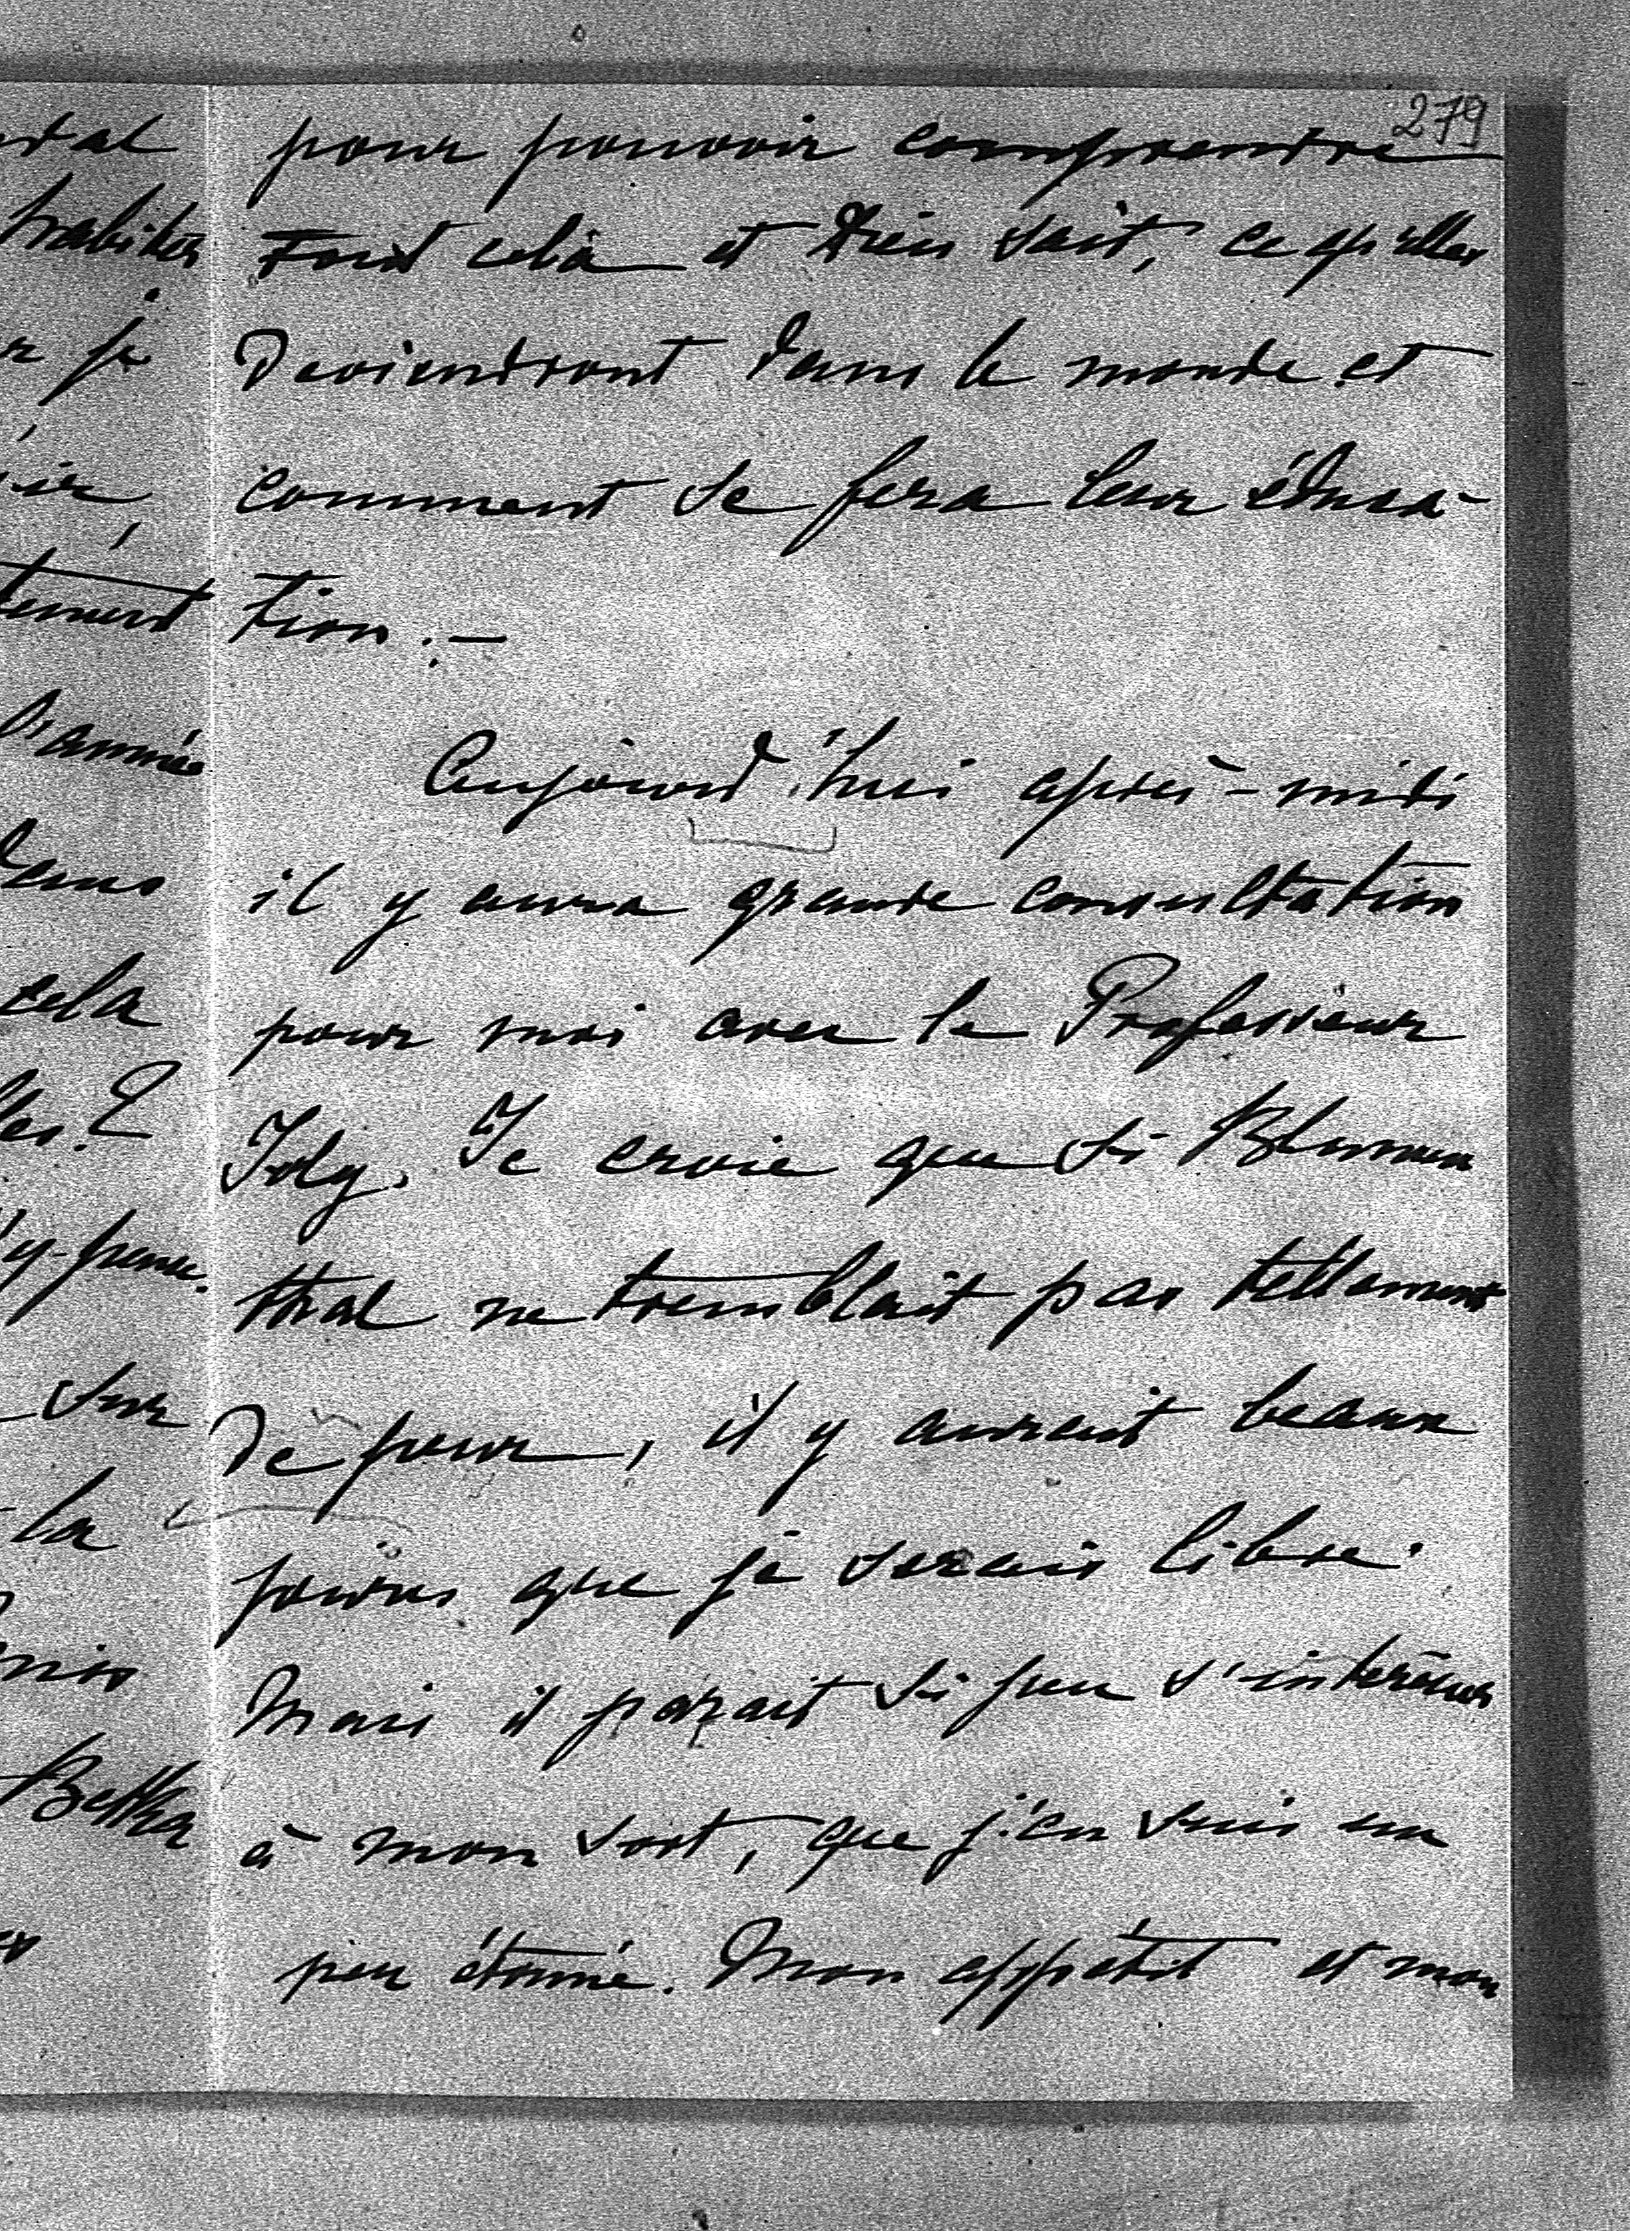 279
pour pouvoir comprendre
tout cela et Dieu sait, ce qu'elles
deviendront dans le monde et
comment se fera leur éduca-
tion.—
Aujourd'hui après-midi
il y aura grande consultation
pour moi avec le Professeur
Joly. Je crois que si Blumen
thal ne tremblait pas tellement
de peur, il y aurait beaux
jours que je serais libre.
Mais il parait si peu s'intéresser
à mon sort, que j'en suis un
peu étonné. Mon appétit et mon
habiter
je
l'année
dans
cela
sur
la
Betka